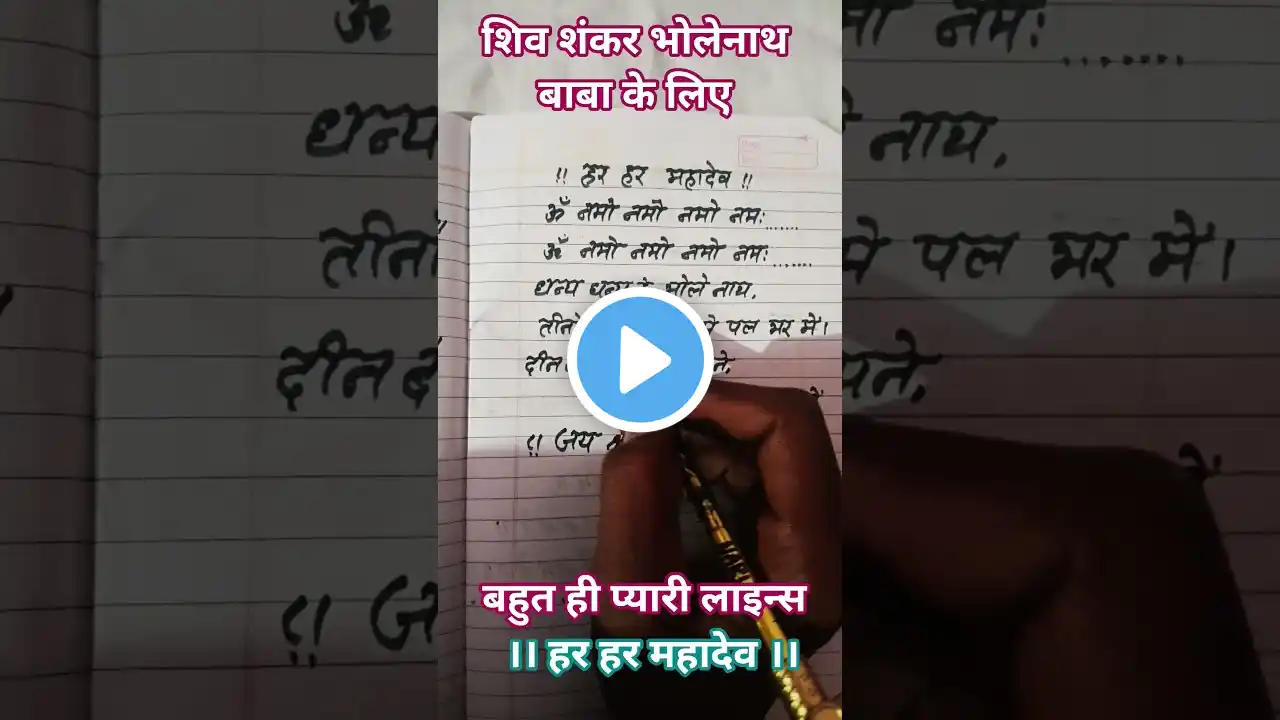 शिव शंकर भोलेनाथ
बाबा के लिए
!! हर हर महादेव !!
ॐ नमो नमो नमो नमः.......
ॐ नमो नमो नमो नमः.......
धन्य धन्य भोले नाथ,
तीनो पल भर में।
दीन
!! जय
बहुत ही प्यारी लाइन्स
।। हर हर महादेव ।।